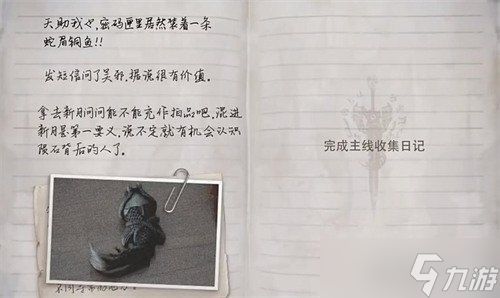 天助我也,密码匣里居然装着一条
蛇眉铜鱼!!
发短信问了吴邪,据说很有价值。
拿去新月问问能不能充作拍品吧,混进
新月是第一要义,说不定就有机会认识
陨石背后的人了。
完成主线收集日记
九游